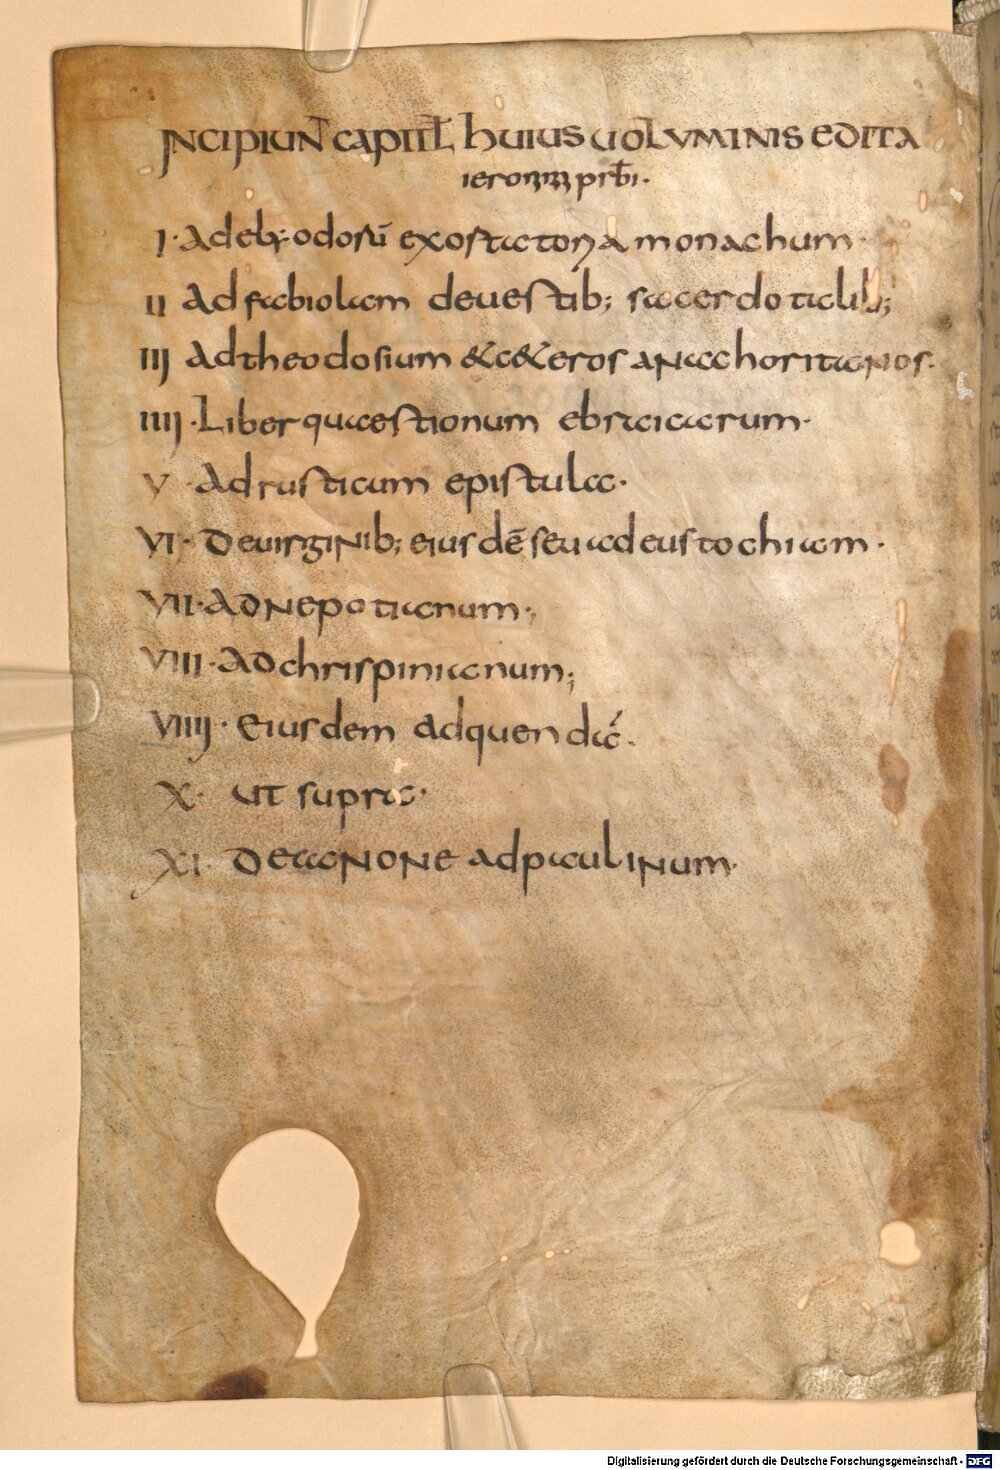 INCIPIUNT CAPITUL HUIUS UOLVMINIS EDITA
ieronimi prbi.
I. Ad eb; odorū exortatoria monachum
II Ad fabiolam deuestib; sacerdotalib;
III Ad theodosium & c&eros anachoritanos.
IIII. Liber quaestionum ebraicarum.
V Ad rusticum epistula.
VI. De uirginib; eiusdē seu ad eustochiam.
VII. Ad nepotianum;
VIII. Ad chrispinianum;
VIIII. Eiusdem ad quendā.
X. ut supra.
XI. De canone ad paulinum.
Digitalisierung gefördert durch die Deutsche Forschungsgemeinschaft - DFG